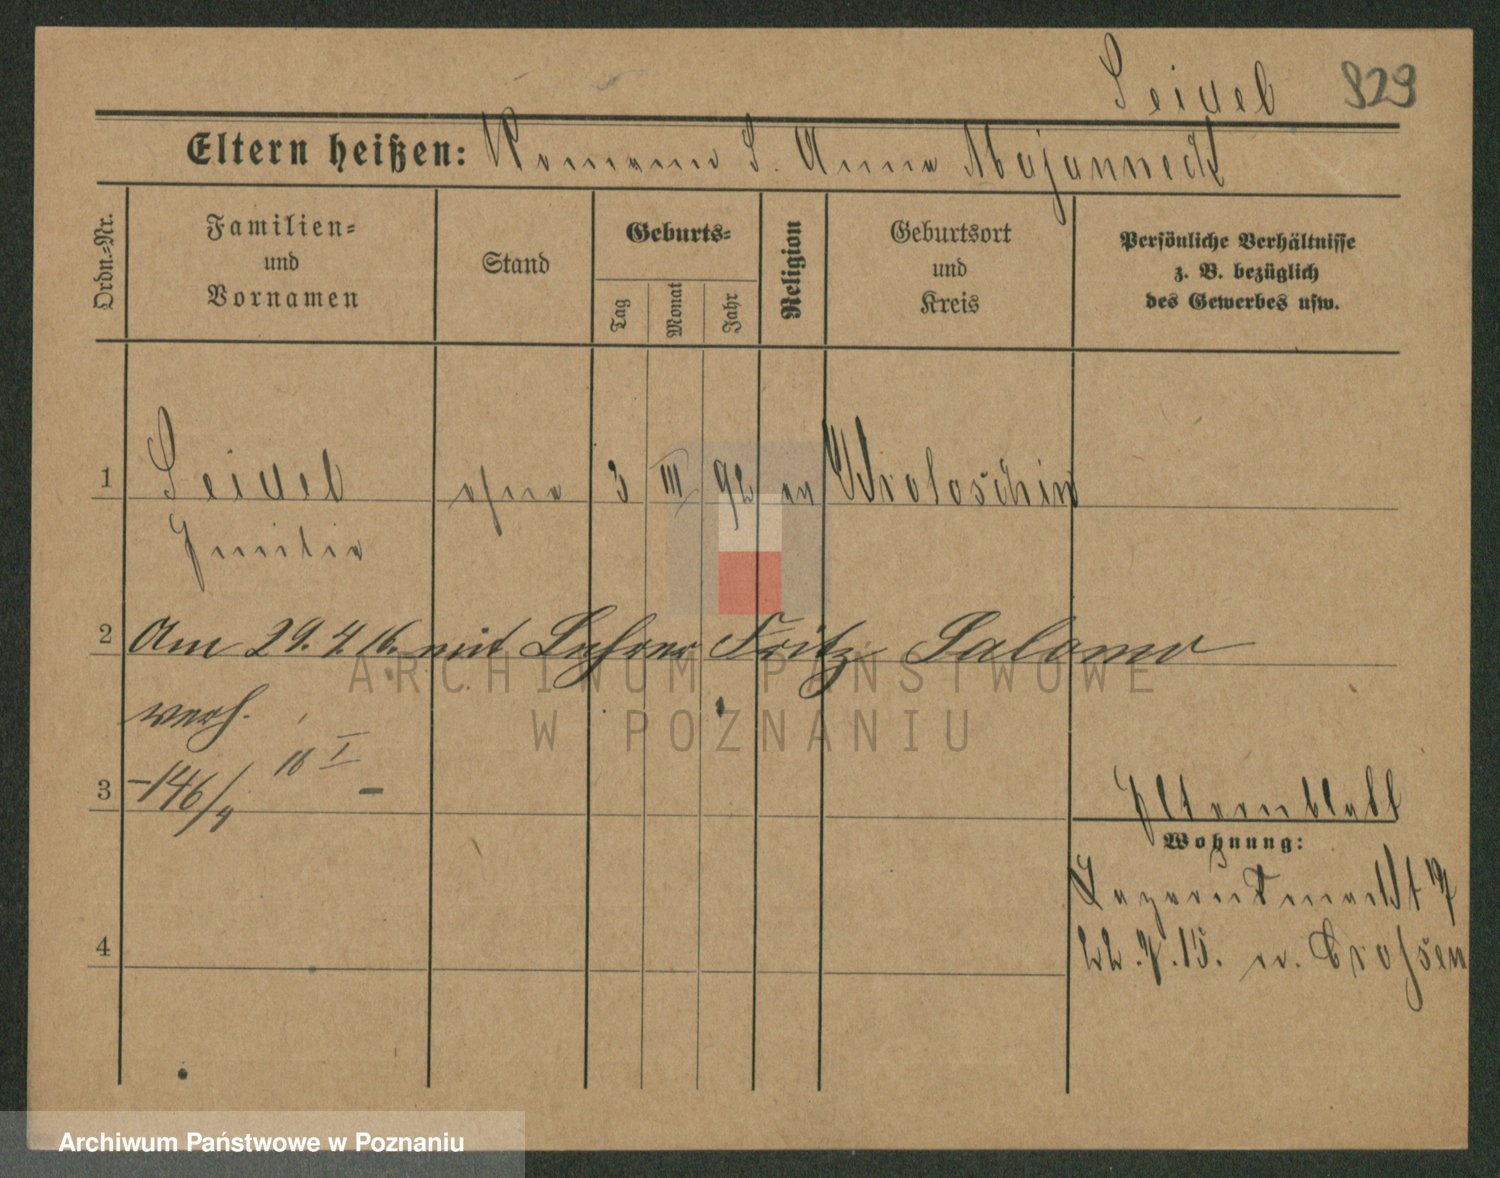 Seidel 929
Eltern heißen: Romann S. Anna Majanneck
Ordn.-Nr.
Familien- und Vornamen
Stand
Geburts-
Tag
Monat
Jahr
Religion
Geburtsort und Kreis
Persönliche Verhältnisse z. B. bezüglich des Gewerbes usw.
1 Seidel ohne 3 III 92 ev
Emilie
2 Am 29. 4 16. mit Lehrer Fritz Salomo
verh.
16 I
3 -146/4 -
Elternblatt
Wohnung:
4
22. 7. 15. Crossen
ARCHIWUM PAŃSTWOWE
W POZNANIU
Archiwum Państwowe w Poznaniu